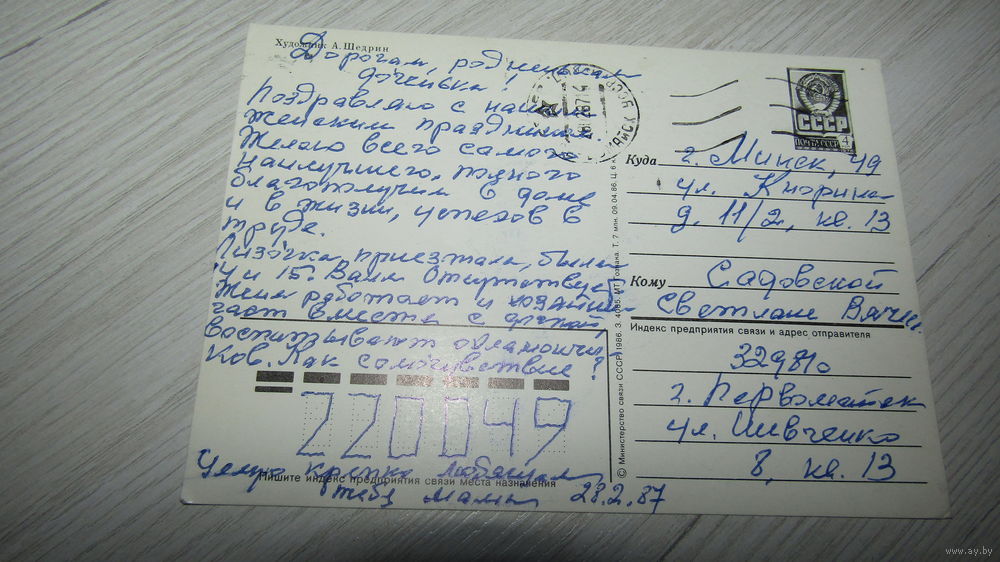 Художник А. Щедрин
Дорогая, родненькая
доченька!
Поздравляю с нашим
женским праздником.
Желаю всего самого
наилучшего, полного
благополучия в доме
и в жизни, успехов в
труде.
приезжала, была
14 и 15. Ваня
Женя работает и
вместе с
воспитывают
ков. Как самочувствие?
220049
Целую крепко любящая
тебя мама 28.2.87
Пишите индекс предприятия связи места назначения
© Министерство связи СССР, 1986. З. 4085. МТ Гознака. Т. 7 млн. 09.04.86. Ц. 6 к.
СССР
ПОЧТА СССР 4
Куда г. Минск, 49
ул. Кнорина
д. 11/2, кв. 13
Кому Садовской
Светлане Вячес.
Индекс предприятия связи и адрес отправителя
г. Первомайск
ул. Шевченко
8, кв. 13
www.ay.by